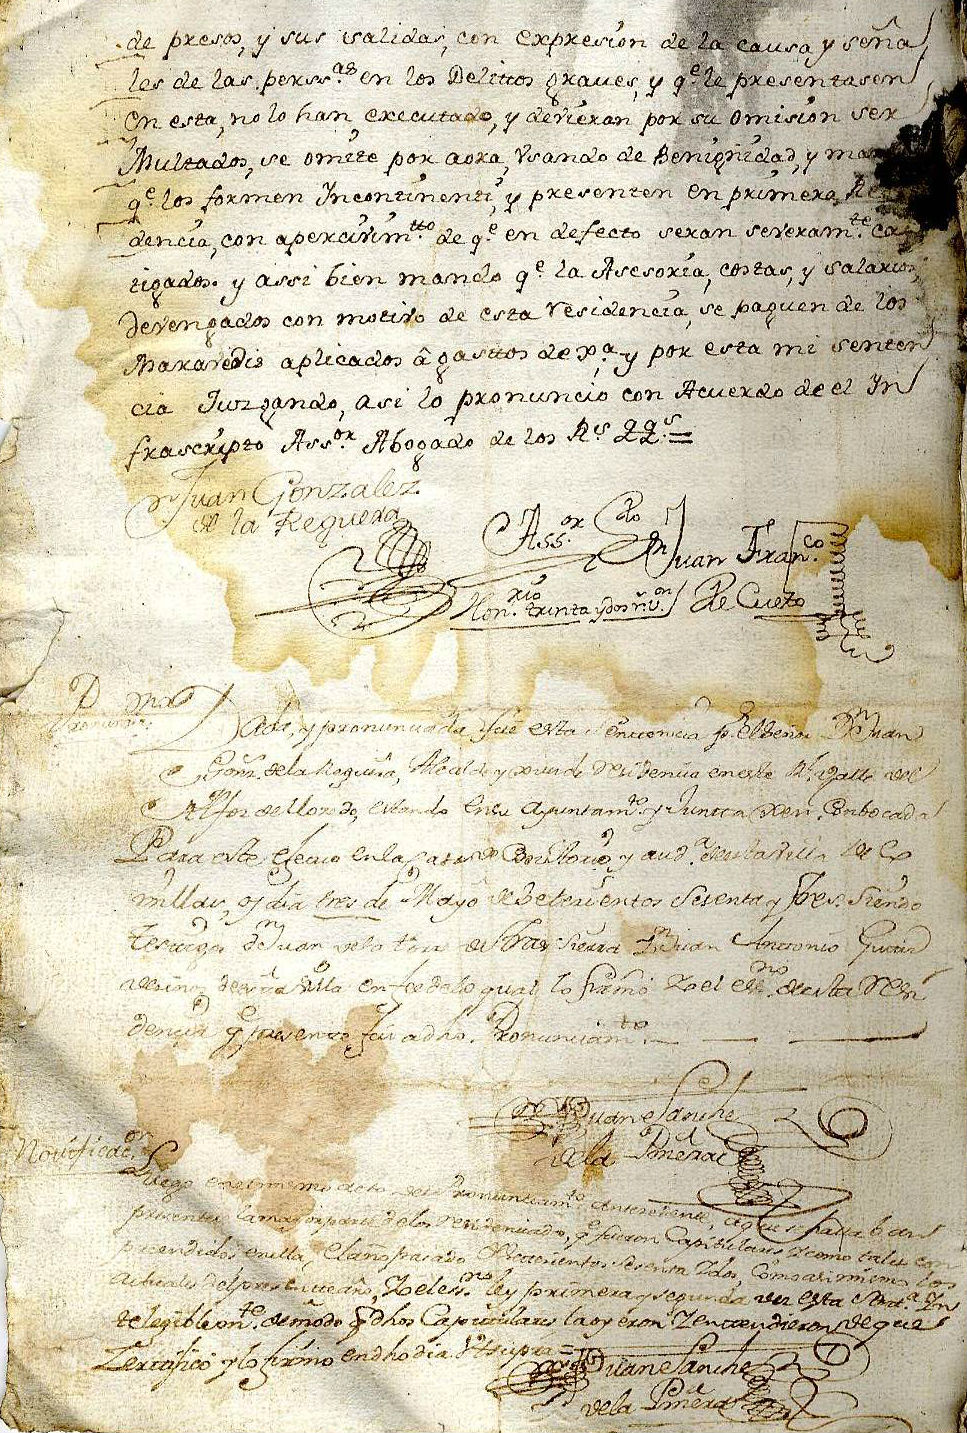 de presos, y sus salidas, con expresion de la causa y seña
les de las perss.as en los Delittos graves, y q.e le presentasen
en esta, no lo han executado, y devieran por su omision ser
Multados, se omite por aora, Vsando de Benignidad, y man
q.e los formen Yncontinenti, y presenten en primera Re
dencia, con apercivim.tto de q.e en defecto seran severam.te cas
tigados. y assi bien mando q.e la Asesoria, costas, y salarios,
Devengados con motivo de esta residencia, se paguen de los
Maravedis aplicados â gasttos de xa. y por esta mi senten
cia Juzgando, asi lo pronuncio con Acuerdo de el Yn
frascripto Ass.or Abogado de los R.s QQ.s =
Dn Juan Gonzalez
de la Reguera
Ass.or Ldo Dn Juan Fran.co
Hon.rio trinta y dos rr.s v.on De Cueto
Pronunciam.
Dada, y pronunciada fue esta sentencia p.r el Señor Dn Juan
Gonz. de la Reguera, Alcalde y Juez de residencia en este R.l Valle del
Alfoz de Lloredo, estando en su Ayuntam.to y Juntta Gen. Conbocada
Para este efecto en la Casa de Consistorio, y aud.a de esta Villa de Co
millas, oy dia tres de Mayo de Setecientos Sesenta y tres. Siendo
testigos Dn Juan de la Torre Dn Juan Antonio
vecinos de esta Villa en fee de lo qual lo firmó Yo el ess.no de esta resi
dencia q.e presente fui a dho. Pronunciam.to
Juan Sanchez
de la
Notificac.on
Luego en el mismo acto del Pronunciam.to Antecedente, a que se hallaban
presentes la mayor parte de los residenciados, q.e fueron Capitulares y como tales con
prendidos en ella, el año pasado de Setecientos Sesenta y dos, Como asimismo los
actuales del presente año, Yo el ess.no ley primera y segunda vez esta Sent.a Yn
teligiblem.te de modo q dhos Capitulares la oyeron Y entendieron de que
Zertifico y lo firmo en dho dia Vt supra =
Juan Sanchez
de la